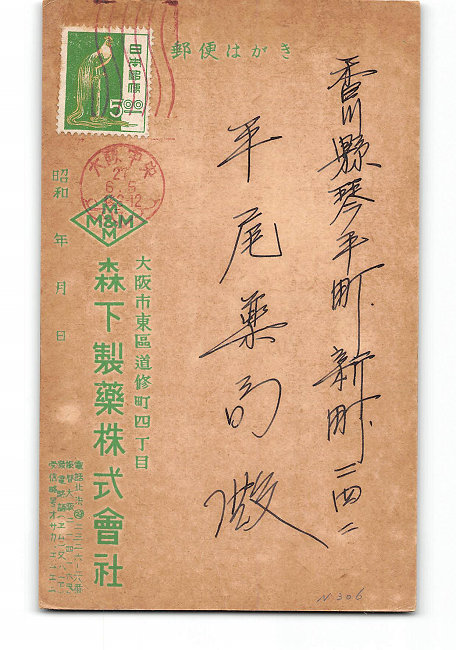 郵便はがき
日本郵便
5.00
香川縣琴平町新町二四二
平尾薬局
大阪中央
27
6.5
昭和 年 月 日
M
M&M
M
大阪市東區道修町四丁目
森下製薬株式會社
N 306